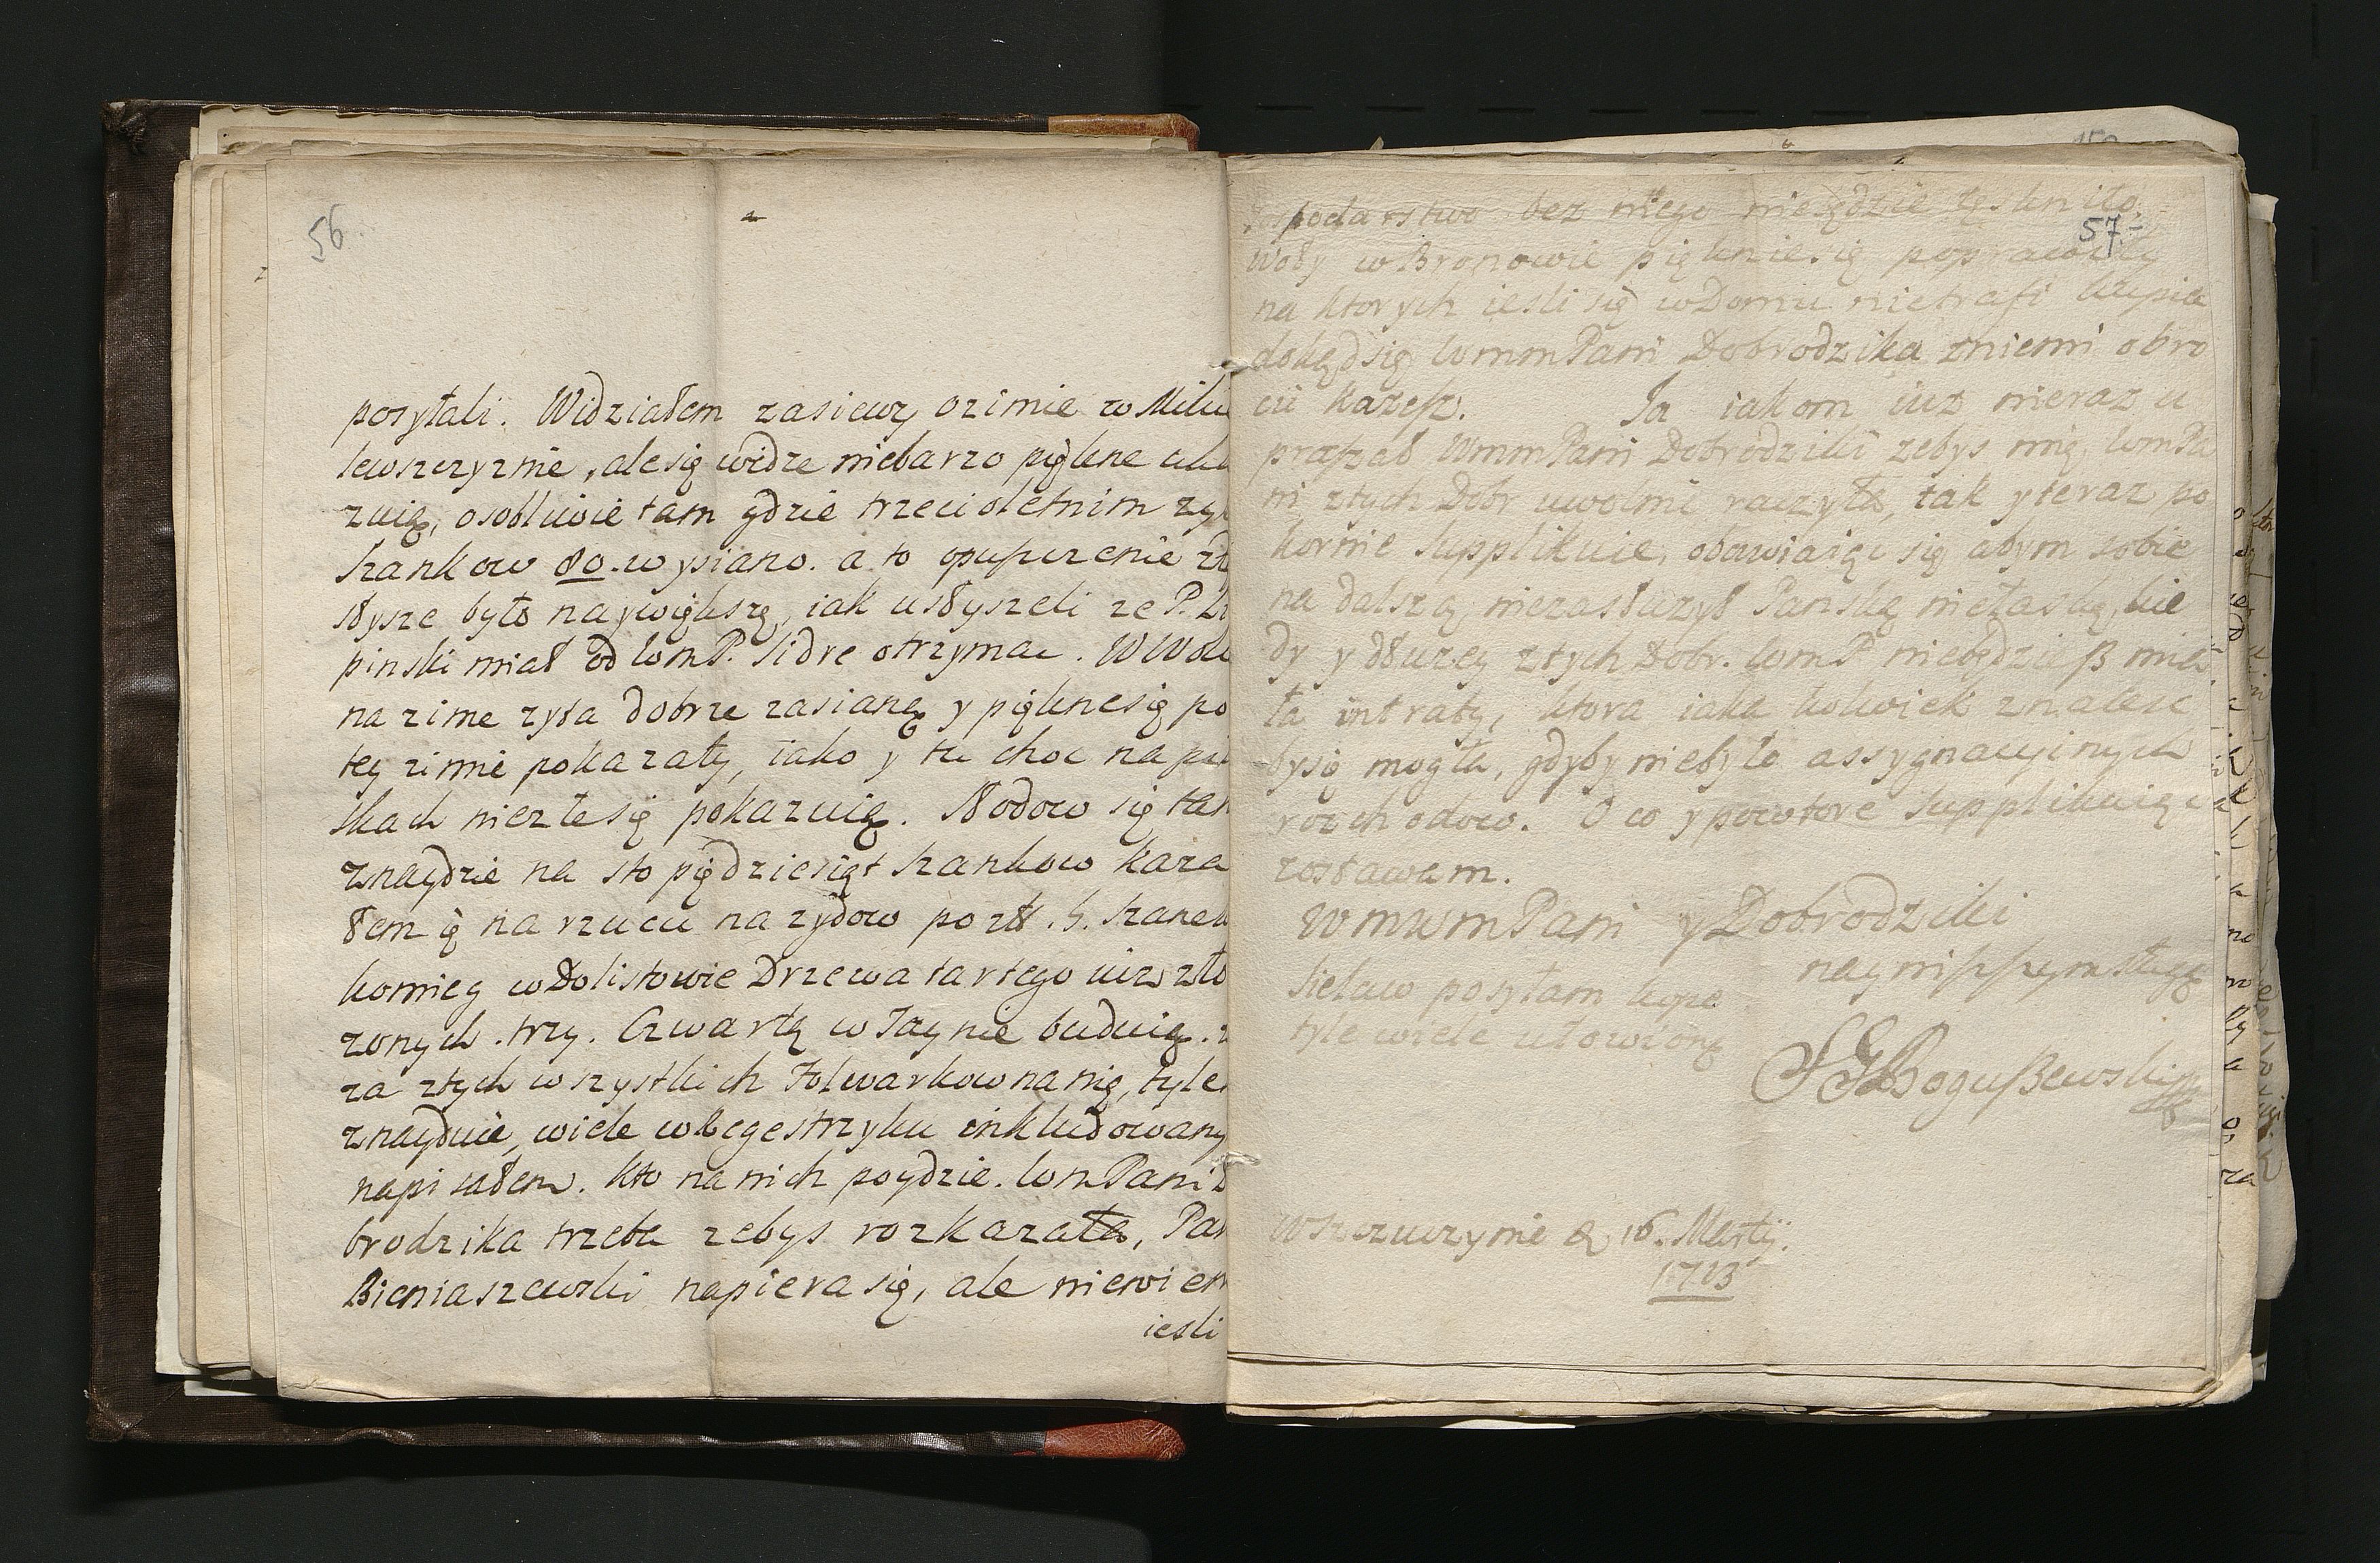 56
posyłali. Widziałem zasiewy ozimie w Milu
lewszczyznie, ale się widze niebarzo piękne uka
zuią, osobliwie tam gdzie trzecioletnim zy
szankow 80. wysiano. a to opuszczenie
słysze było naywiększą, iak usłyszeli ze P.
pinski miał od WmP. Sidre otrzymac. W
na zime zyta dobrze zasianą y pięknesię po
tey zimie pokazały, iako y tu choc na
skach niezle się pokazuią. Słodow się tam
znaydzie na sto piędziesiąt szankow kaza
łem ię na rzucu na zydow po zł. 5. szanek
komieg w Dolistowie Drzewa tartego iuz zło
zonych. trzy. Czwartą w Taynie buduię.
za ztych wszystkich Folwarkow na nię, tyle
znayduie, wiele w Regestrzyku inkludowany
napisałem. Kto na nich poydzie. WmPani
brodzika trzeba zebys rozkazała, Pan
Bieniaszewski napiera się, ale niewiem
iesli
57
spodarstwo bez niego nie będzie tęskniło.
Woły w Bronowie pięknie się poprawiły
na ktorych iesli się w Domu nietrafi kupia
dokąd się WmmPani Dobrodzika zniemi obro
cic kazesz. Ia iakom iuz nieraz u
praszał WmmPani Dobrodziki zebys mię WmPa
ni ztych Dobr uwolnic raczyła, tak y teraz po
kornie supplikuie, obawiaięc się abym sobie
na dalszą niezasłuzył Panską niełaskę, kie
dy y dłuzey ztych Dobr. WmP niebędzieß mia
ła intraty, ktora iaka kolwiek znalesc
bysię mogła, gdyby niebyło assygnacyinych
rozchodow. O co y powtore supplikuiąc
zostawam.
WmmmPani y Dobrodziki
nayniszszym sługą
Sielaw posyłam kopę
tyle wiele ułowiono
SGBogußewski
w Szczuczynie d 16. Martij.
1713